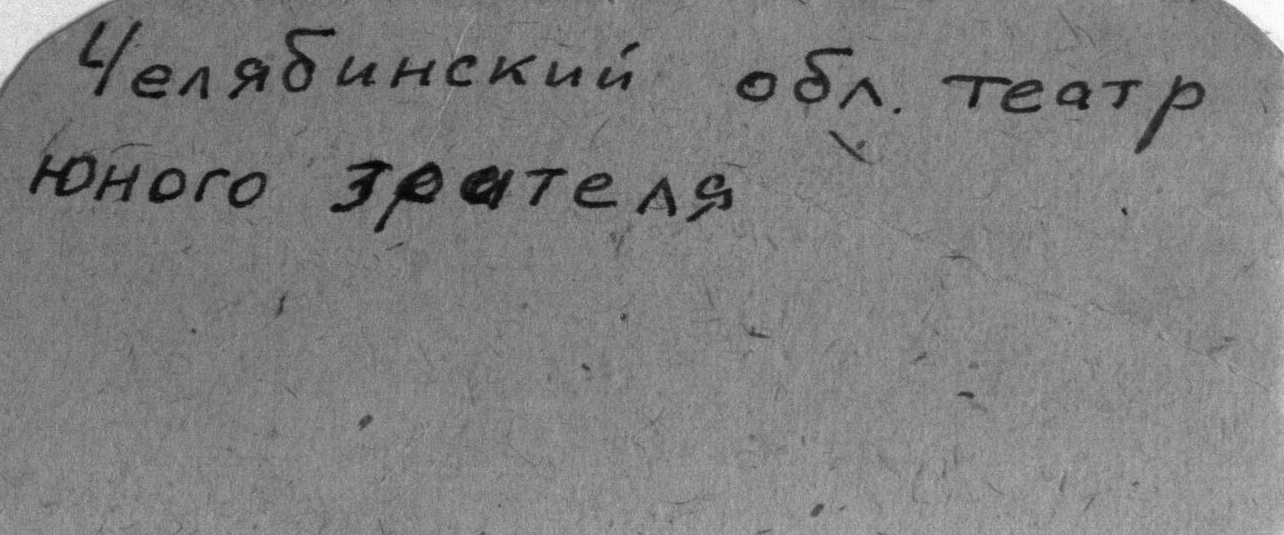 Челябинский обл. театр
юного зрителя